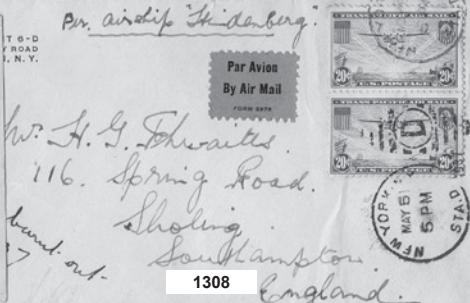 Per. airship "Hindenberg".
T 6-D
Y ROAD
N. Y.
Par Avion
By Air Mail
FORM 2978
TRANS-PACIFIC AIR MAIL
20¢ 20¢
U.S. POSTAGE
TRANS-PACIFIC AIR MAIL
20¢ 20¢
U.S. POSTAGE
NEW YORK
MAY 5
5 PM
STA.D
Mr. H. G. Thwaites.
116. Spring Road.
Sholing.
Southampton
England.
burnt out
7
1308